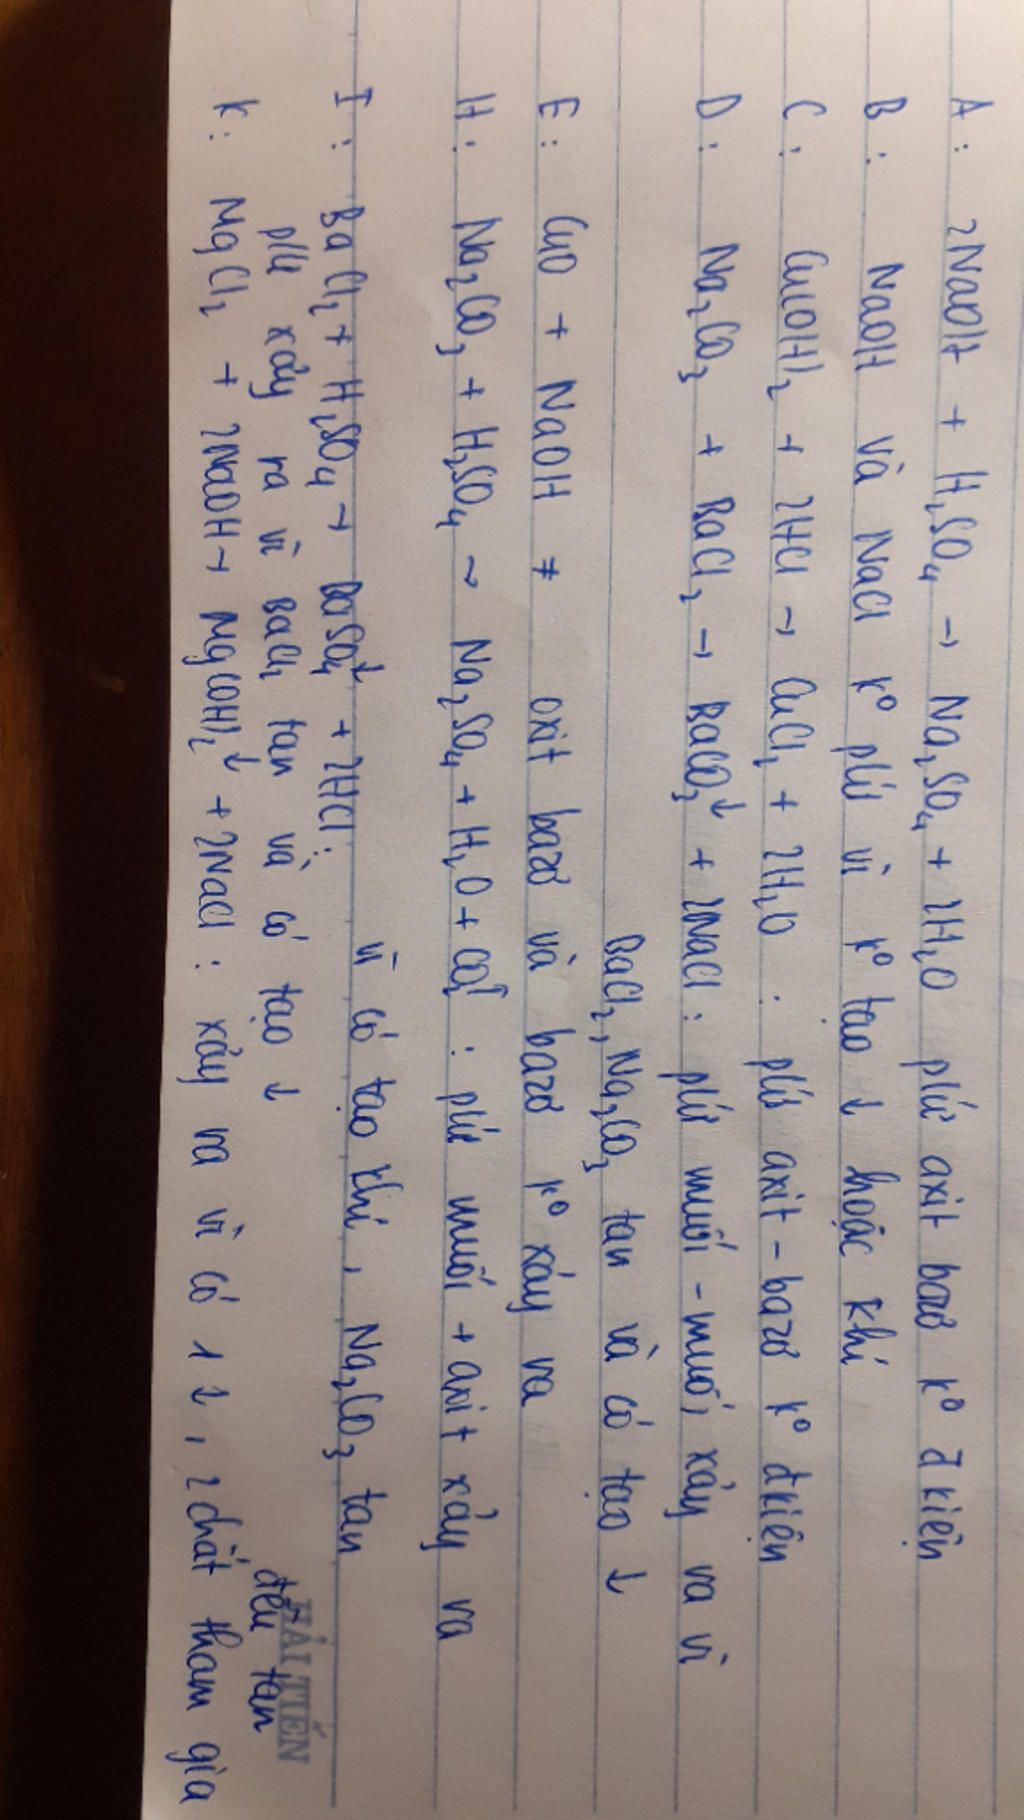 A : 2NaOH + H₂SO₄ → Na₂SO₄ + 2H₂O pứ axit bazơ k° đkiện
B : NaOH và NaCl k° pứ vì k° tạo ↓ hoặc khí
C : Cu(OH)₂ + 2HCl → CuCl₂ + 2H₂O : pứ axit - bazơ k° đkiện
D : Na₂CO₃ + BaCl₂ → BaCO₃↓ + 2NaCl : pứ muối - muối, xảy ra vì
BaCl₂, Na₂CO₃ tan và có tạo ↓
E : CuO + NaOH ≠ oxit bazơ và bazơ k° xảy ra
H : Na₂CO₃ + H₂SO₄ → Na₂SO₄ + H₂O + CO₂↑ : pứ muối + axit xảy ra
vì có tạo khí, Na₂CO₃ tan
I : BaCl₂ + H₂SO₄ → BaSO₄↓ + 2HCl :
pứ xảy ra vì BaCl₂ tan và có tạo ↓
K : MgCl₂ + 2NaOH → Mg(OH)₂↓ + 2NaCl : xảy ra vì có 1 ↓, 2 chất tham gia
đều tan
HẢI TIẾN